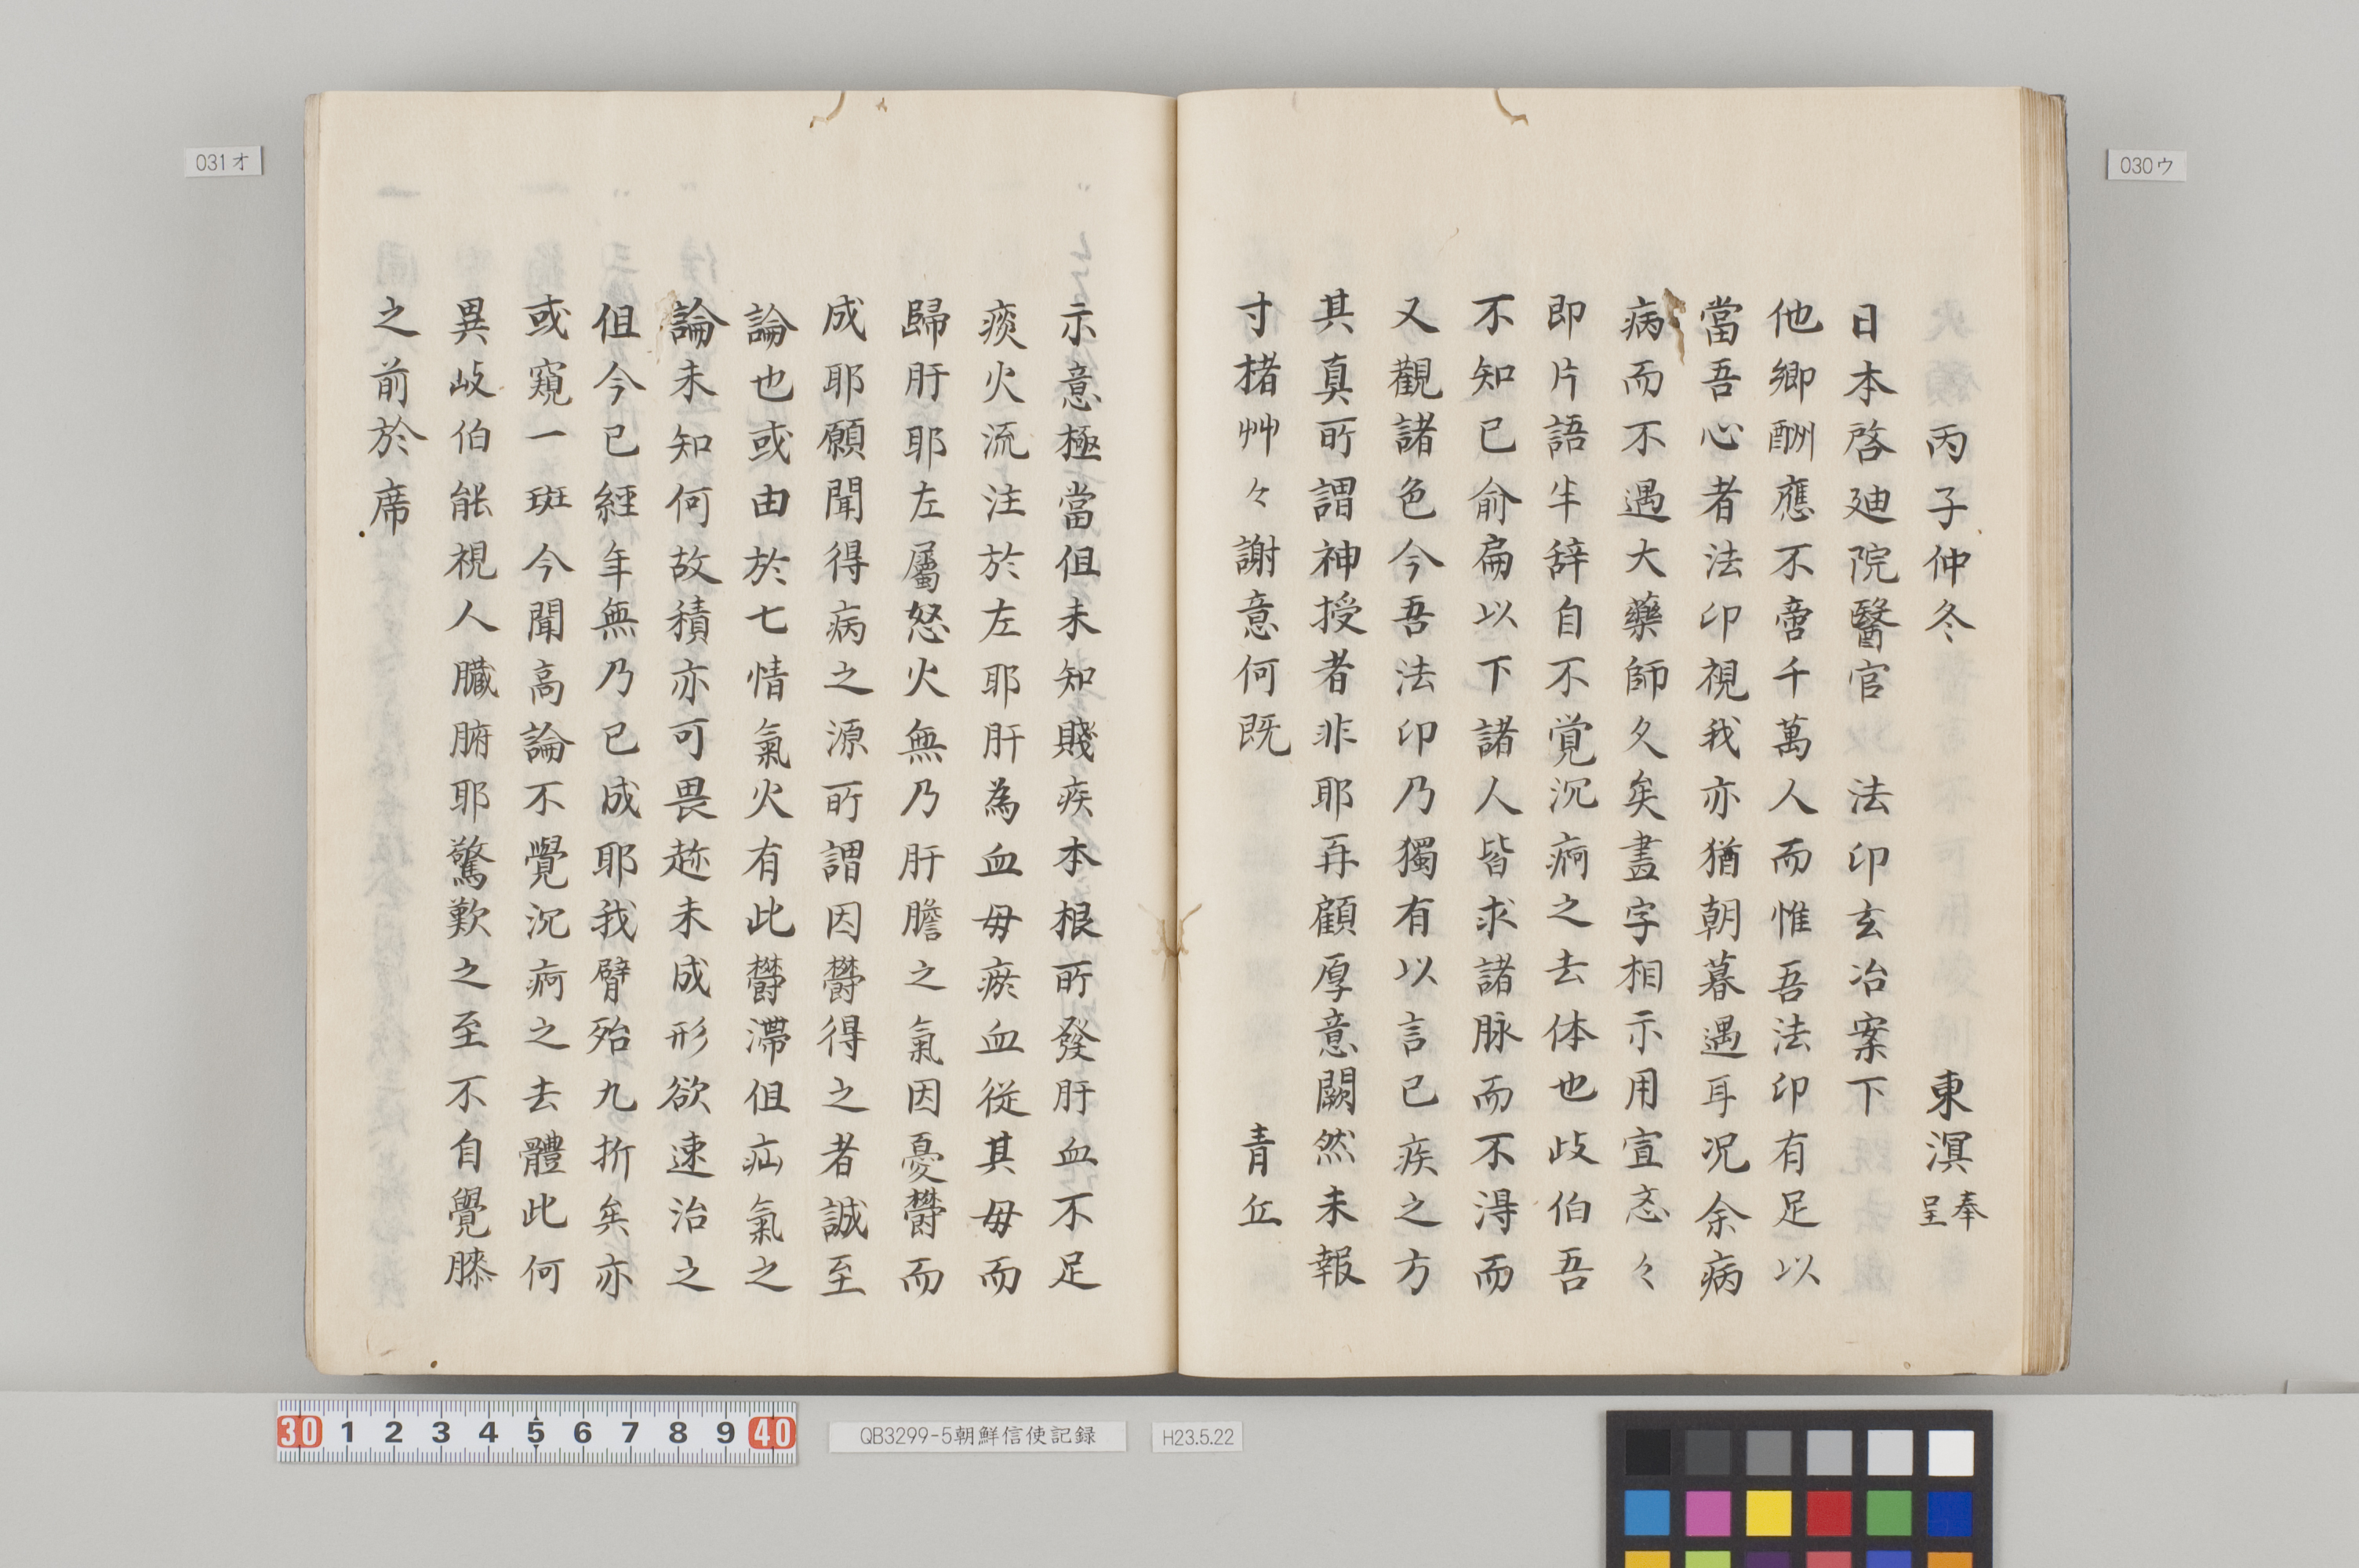 丙子仲冬 東溟奉呈
日本啓廸院醫官 法印玄冶案下
他郷酬應不啻千萬人而惟吾法印有足以
當吾心者法印視我亦猶朝暮遇耳况余病
病而不遇大藥師久矣畫字相示用宣忞々
即片語半辞自不覚沉痾之去体也歧伯吾
不知已俞扁以下諸人皆求諸脉而不淂而
又觀諸色今吾法印乃獨有以言已疾之方
其真所謂神授者非耶再顧厚意闕然未報
寸楮艸々謝意何既 青丘
示意極當但未知賤疾本根所發肝血不足
痰火流注於左耶肝為血母瘀血從其母而
歸肝耶左屬怒火無乃肝膽之氣因憂欝而
成耶願聞得病之源所謂因欝得之者誠至
論也或由於七情氣火有此欝滯但疝氣之
論未知何故積亦可畏趂未成形欲速治之
但今已經年無乃已成耶我臂殆九折矣亦
或窺一斑今聞高論不覺沉痾之去體此何
異岐伯能視人臟腑耶驚歎之至不自覺膝
之前於席
031オ
030ウ
30 1 2 3 4 5 6 7 8 9 40
QB3299-5朝鮮信使記録
H23.5.22